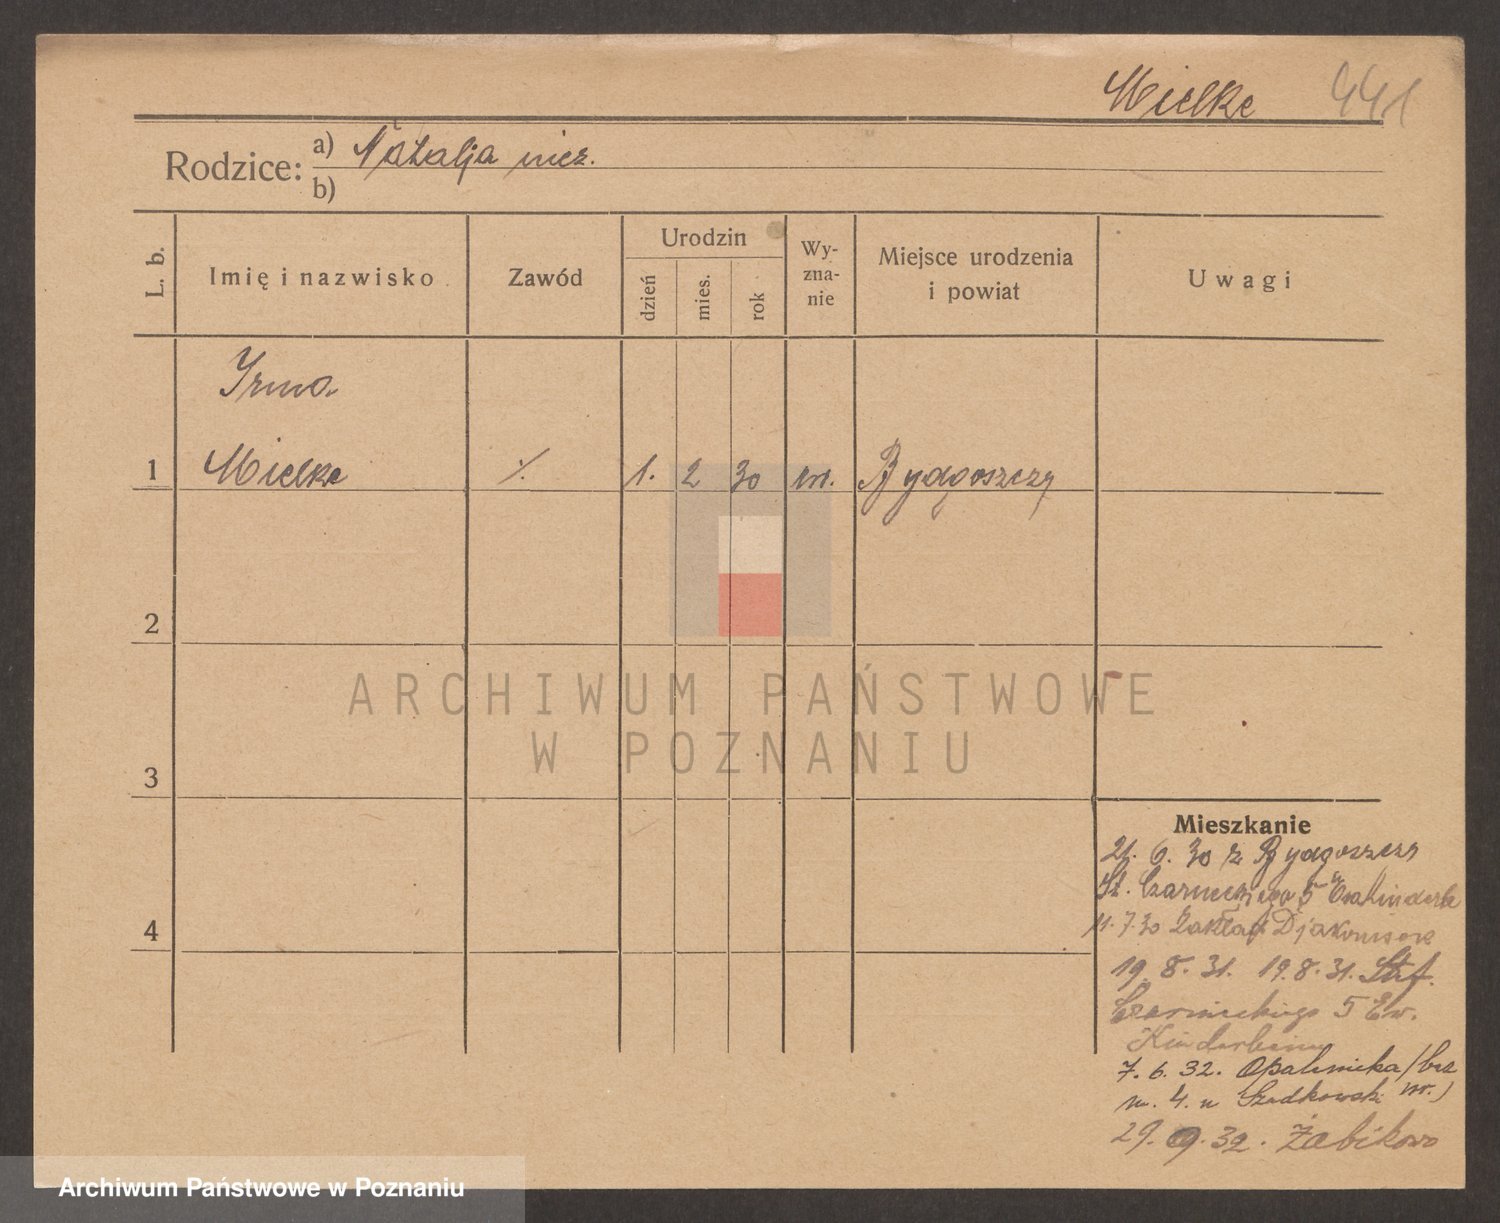 Mielke 441
Rodzice: a) Natalja niez.
b)
L. b.
Imię i nazwisko
Zawód
Urodzin
dzień
mies.
rok
Wy-
zna-
nie
Miejsce urodzenia
i powiat
Uwagi
Irma
1 Mielke ·/. 1. 2 30 Bydgoszczy
2
3
4
Mieszkanie
21. 6. 30 z Bydgoszczy
St. Czarneckiego 5
11. 7. 30 Zakład
19. 8. 31. 19. 8. 31. Stef.
Czarnieckiego 5 Ew.
Kinderheim
7. 6. 32. Opalenicka /bez
m. 4. u Szadkowski nr.)
29. 9. 32. Żabikowo
ARCHIWUM PAŃSTWOWE
W POZNANIU
Archiwum Państwowe w Poznaniu